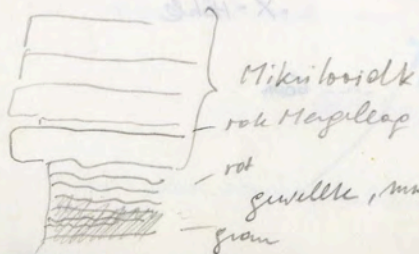 Mikritooidk
rote Mergellag
rot
gewellte, mm
grau